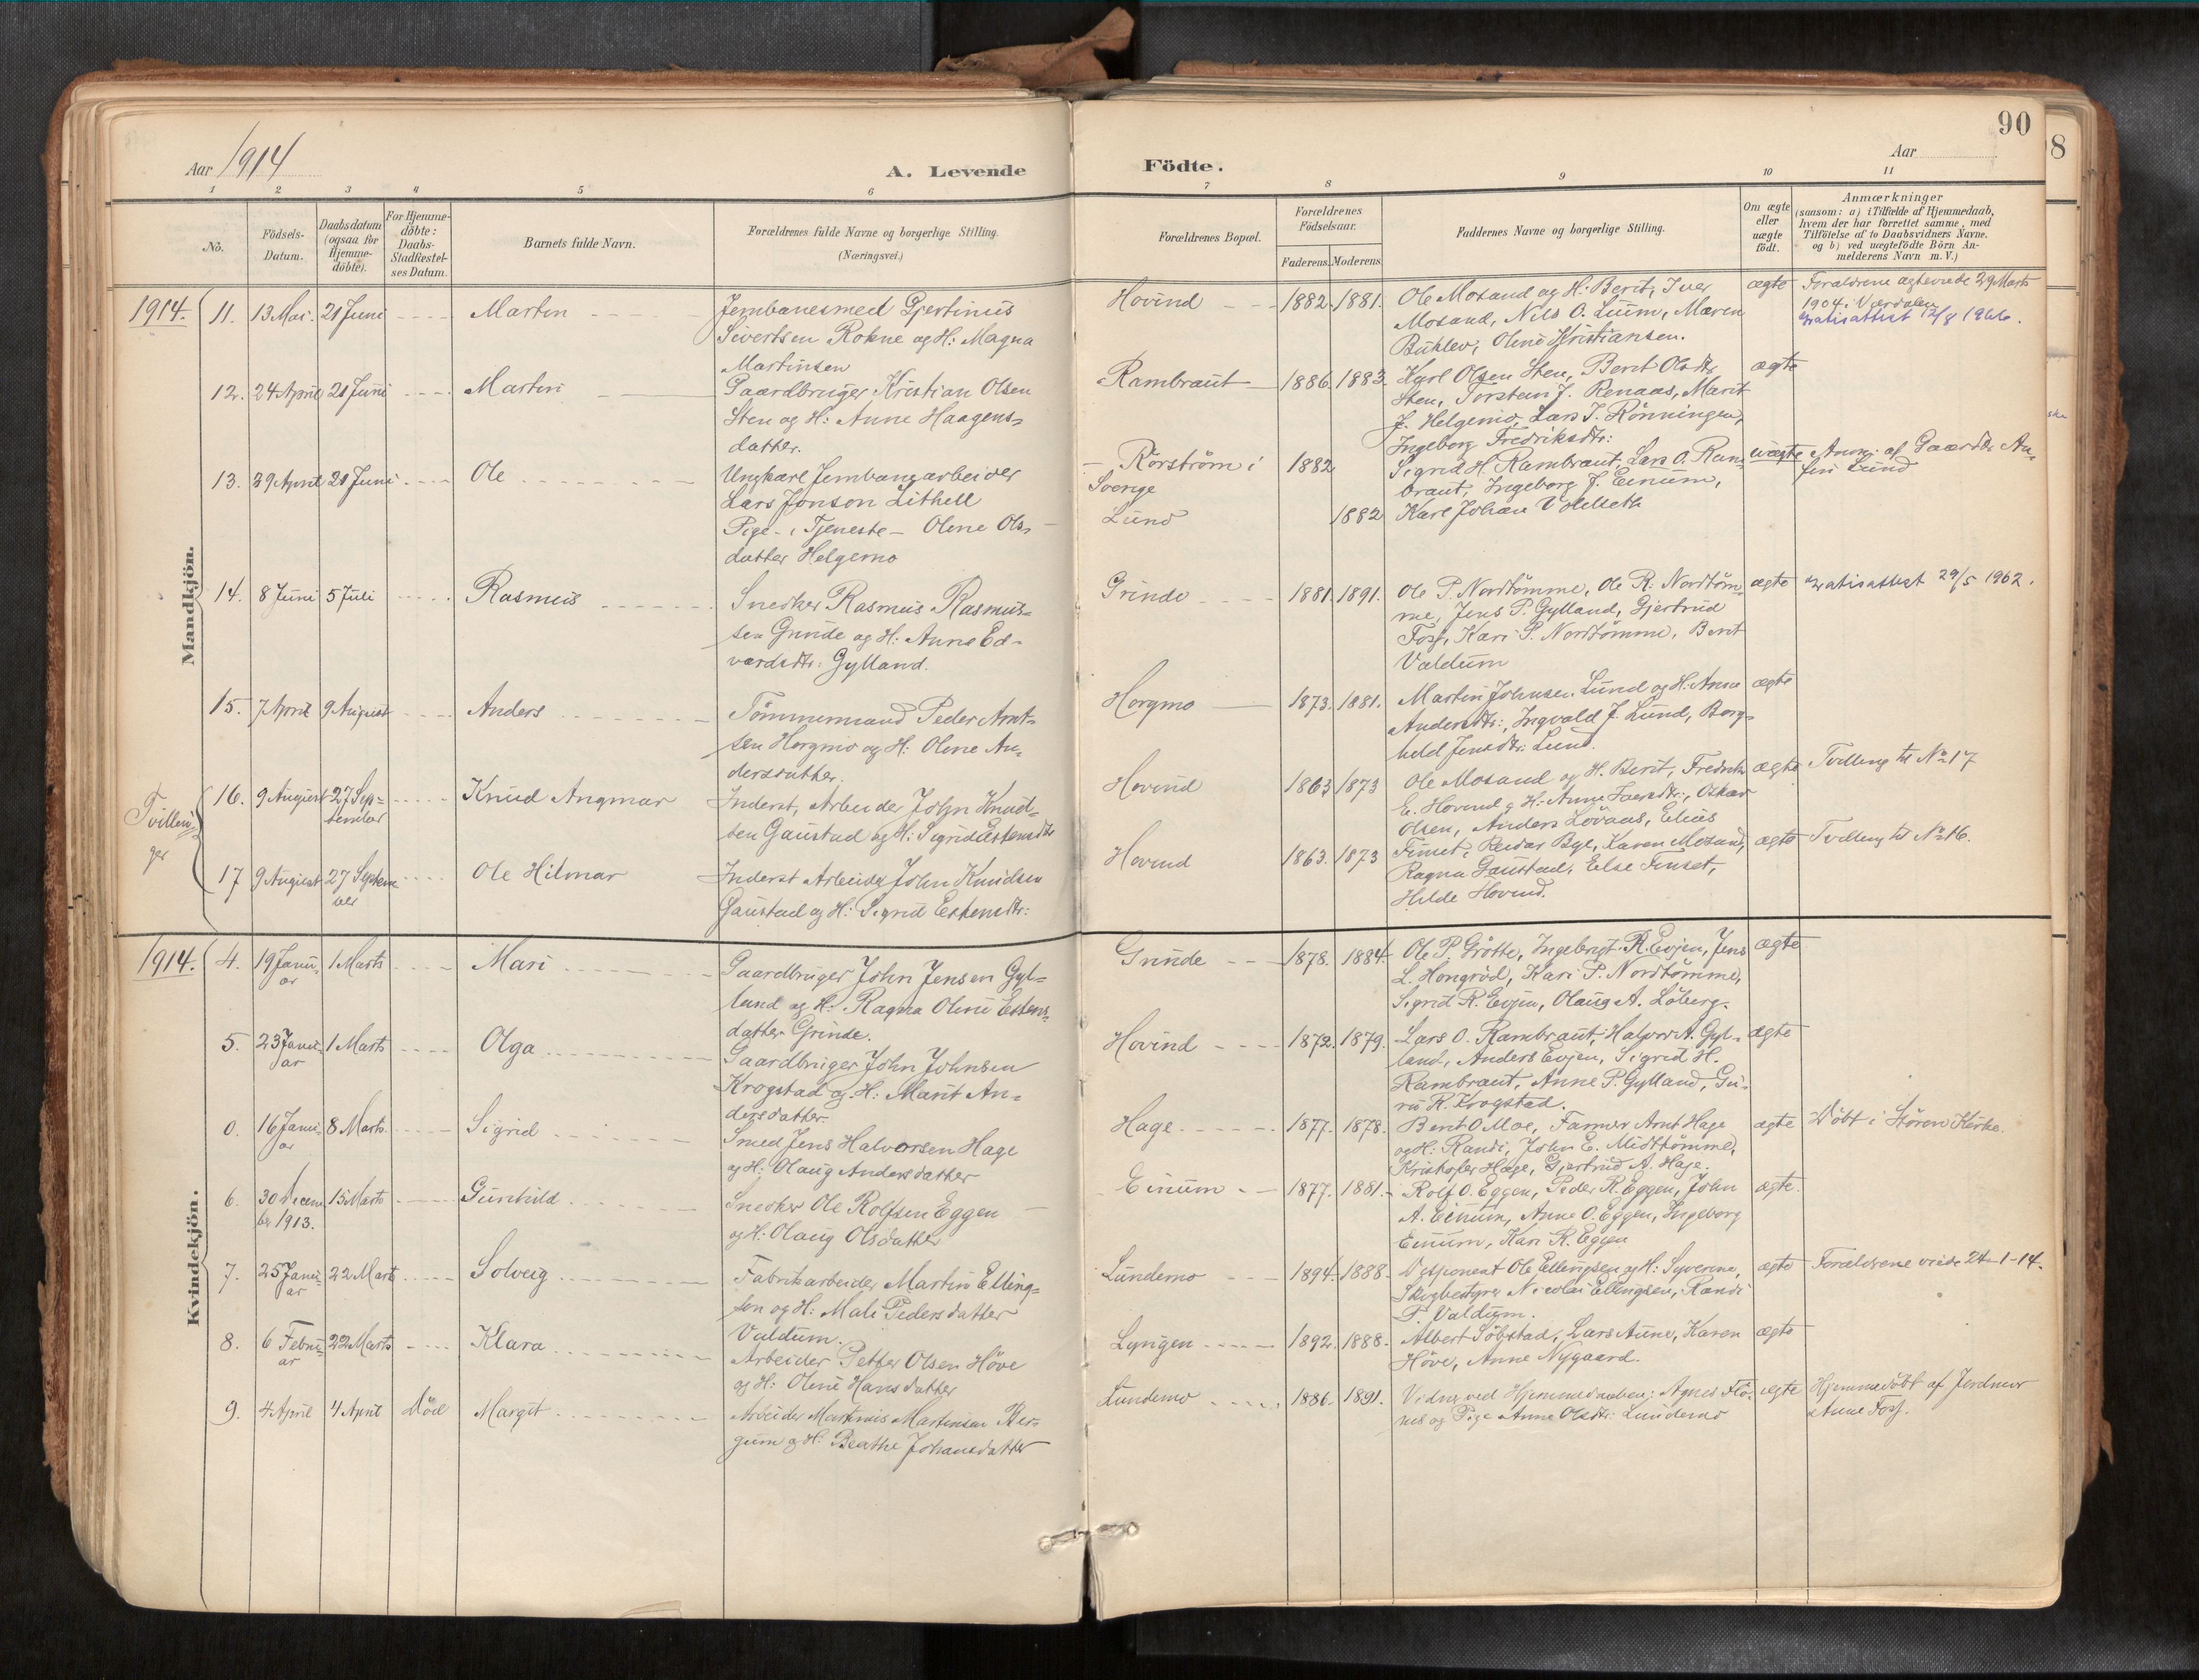 90
8
Aar 1914
A. Levende
Födte.
Aar
1 2 3 4 5 6 7 8 9 10 11
No.
Födsels-
Datum.
Daabsdatum
(ogsaa for
Hjemme-
döbte).
For Hjemme-
döbte:
Daabs-
Stadfæstel-
ses Datum.
Barnets fulde Navn.
Forældrenes fulde Navne og borgerlige Stilling.
(Næringsvei.)
Forældrenes Bopæl.
Forældrenes
Födselsaar.
Faderens. Moderens.
Faddernes Navne og borgerlige Stilling.
Om ægte
eller
uægte
födt.
Anmærkninger
(saasom: a) i Tilfælde af Hjemmedaab,
hvem der har forrettet samme, med
Tilföielse af to Daabsvidners Navne.
og b) ved uægtefödte Börn An-
melderens Navn m. V.)
Mandkjön.
1914. 11. 13 Mai. 21 Juni Martin
Jernbanesmed Gjertinus
Sivertsen Rokne og H: Magna
Martinsen
Hovind 1882. 1881.
Ole Mosand og H: Berit, Iver
Mosand, Nils O. Lium, Maren
Oline Kristiansen.
ægte
Forældrene ægteviede 29 Marts
1904 i Værdalen
gratisattest 12/8 1966.
12. 24 April 21 Juni Martin
Gaardbruger Kristian Olsen
Sten og H: Anne Haagens-
datter.
Rambraut 1886. 1883.
Karl Olsen Sten, Berit Olsdtr
Sten, Torstein J. Renaas, Marit
J. Helgemo, Lars J. Rönningen,
Ingeborg Fredriksdtr:
ægte
13. 29 April 21 Juni Ole
Ungkarl Jernbanearbeider
Lars Jonson Lithell
Pige i Tjeneste - Oline Ols-
datter Helgemo
Rörström i 1882
Sverige
Lund 1882
Sigrid H. Rambraut, Lars O. Ram-
braut, Ingeborg J. Einum,
Karl Johan
uægte
af Gaardbr. An-
Lund
14. 8 Juni 5 Juli Rasmus
Snedker Rasmus Rasmus-
sen Grinde og H: Anne Ed-
vardsdtr: Gylland.
Grinde 1881. 1891.
Ole P. Nordtömme, Ole R. Nordtöm-
me, Jens P. Gylland, Gjertrud
Foss, Kari P. Nordtömme, Berit
Valdum
ægte
gratisattest 29/5 1962.
15. 7 April 9 August Anders
Tömmermand Peder Arnt-
sen Horgmo og H: Oline An-
dersdatter.
Horgmo 1873. 1881.
Martin Johnsen Lund og H: Anne
Andersdtr:, Ingvald J. Lund, Borg-
hild Jensdtr: Lund.
ægte
Tvillin-
ger
16. 9 August 27 Sep-
tember
Knud Angmar
Inderst, Arbeider John Knud-
sen Gaustad og H: Sigrid Estensdtr
Hovind 1863 1873
Ole Mosand og H. Berit, Fredrik
E. Hovind og H: Anne Iversdtr:, Oskar
Olsen, Anders Lövaas, Elias
ægte
Tvilling til No 17
17 9 August 27 Septem-
ber
Ole Hilmar
Inderst Arbeider John Knudsen
Gaustad og H: Sigrid Estensdtr:
Hovind 1863. 1873
Finset, Reidar Bye, Karen Mosand,
Ragna Gaustad, Else Finset,
Hilde Hovind.
ægte
Tvilling til No 16.
Kvindekjön.
1914. 4. 19 Janu-
ar
1 Marts Mari
Gaardbruger John Jensen Gyl-
land og H: Ragna Oline Estens-
datter Grinde.
Grinde 1878. 1884.
Ole P. Grötte, Ingebrigt R. Evjen, Jens
L. Hongröd, Kari P. Nordtömme,
Sigrid R. Evjen, Olaug A. Löberg.
ægte
5. 23 Janu-
ar
1 Marts Olga
Gaardbruger John Johnsen
Krogstad og H: Marit An-
dersdatter.
Hovind 1872. 1879.
Lars O. Rambraut, Halvor A. Gyl-
land, Anders Evjen, Sigrid H.
Rambraut, Anne P. Gylland, Gu-
ru R. Krogstad.
ægte
0. 16 Janu-
ar
8 Marts. Sigrid
Smed Jens Halvorsen Hage
og H: Olaug Andersdatter
Hage 1877. 1878.
Berit O Moe, Farmer Arnt Hage
og H: Randi, John E. Midttömme,
Kristofer Hage, Gjertrud A. Hage.
ægte
Döbt i Stören Kirke.
6. 30 Decem-
ber 1913.
15 Marts Gunhild
Snedker Ole Rolfsen Eggen
og H: Olaug Olsdatter
Einum 1877. 1881.
Rolf O. Eggen, Peder R. Eggen, John
A. Einum, Anne O. Eggen, Ingeborg
Einum, Kari R. Eggen
ægte.
7. 25 Janu-
ar
22 Marts Solveig
Fabrikarbeider Martin Elling-
sen og H: Mali Pedersdatter
Valdum.
Lundemo 1894. 1888.
Disponent Ole Ellingsen og H: Syverine,
Skogbestyrer Nicolai Ellingsen, Randi
P. Valdum.
ægte
Forældrene viede 24-1-14.
8. 6 Febru-
ar
22 Marts Klara
Arbeider Petter Olsen Höve
og H: Oline Hansdatter
Lyngen 1892. 1888.
Albert Söbstad, Lars Aune, Karen
Höve, Anne Nygaard.
ægte
9. 4 April 4 April Död Margit
Arbeider Martinus Martinsen Ber-
gum og H: Beathe Johansdatter
Lundemo 1886. 1891.
Vidner ved Hjemmedaaben: Agnes Flö-
nes og Pige Anne Olsdtr: Lundemo
ægte
Hjemmedöbt af Jordmor
Anne Foss.